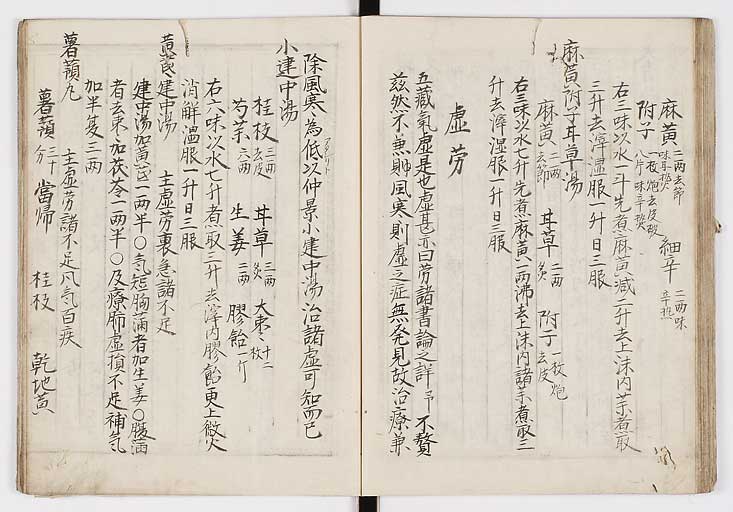 麻黄 二両去節 味辛熱 細辛 二両味辛熱
附子 一枚炮去皮破八片味辛熱
右三味以水一斗先煮麻黄減二升去上沫内芍煮取
三升去滓温服一升日三服
麻黄附子甘草湯
麻黄 二両去節 甘草 二両炙 附子 一枚炮去皮
右三味以水七升先煮麻黄一両沸去上沫内諸芍煮取三
升去滓温服一升日三服
虚労
五蔵氣虚是也虚甚亦曰労諸書論之詳 不贅
茲然不兼夫風寒則虚之症無発見故治療兼
除風寒為低以仲景小建中湯治諸虚可知而已
小建中湯
桂枝 三両去皮 甘草 三両炙 大棗 十二枚
芍薬 六両 生姜 三両 膠飴 一斤
右六味以水七升煮取三升去滓内膠飴更上微火
消解温服一升日三服
黄茋建中湯 主虚労裏急諸不足
建中湯加黄茋一両半○氣短胸満者加生姜○腹満
者去棗加茯苓一両半○及療肺虚損不足補氣
加半夏三両
薯蕷丸 主虚労諸不足风氣百疾
薯蕷 三十分 當歸 桂枝 乾地黄